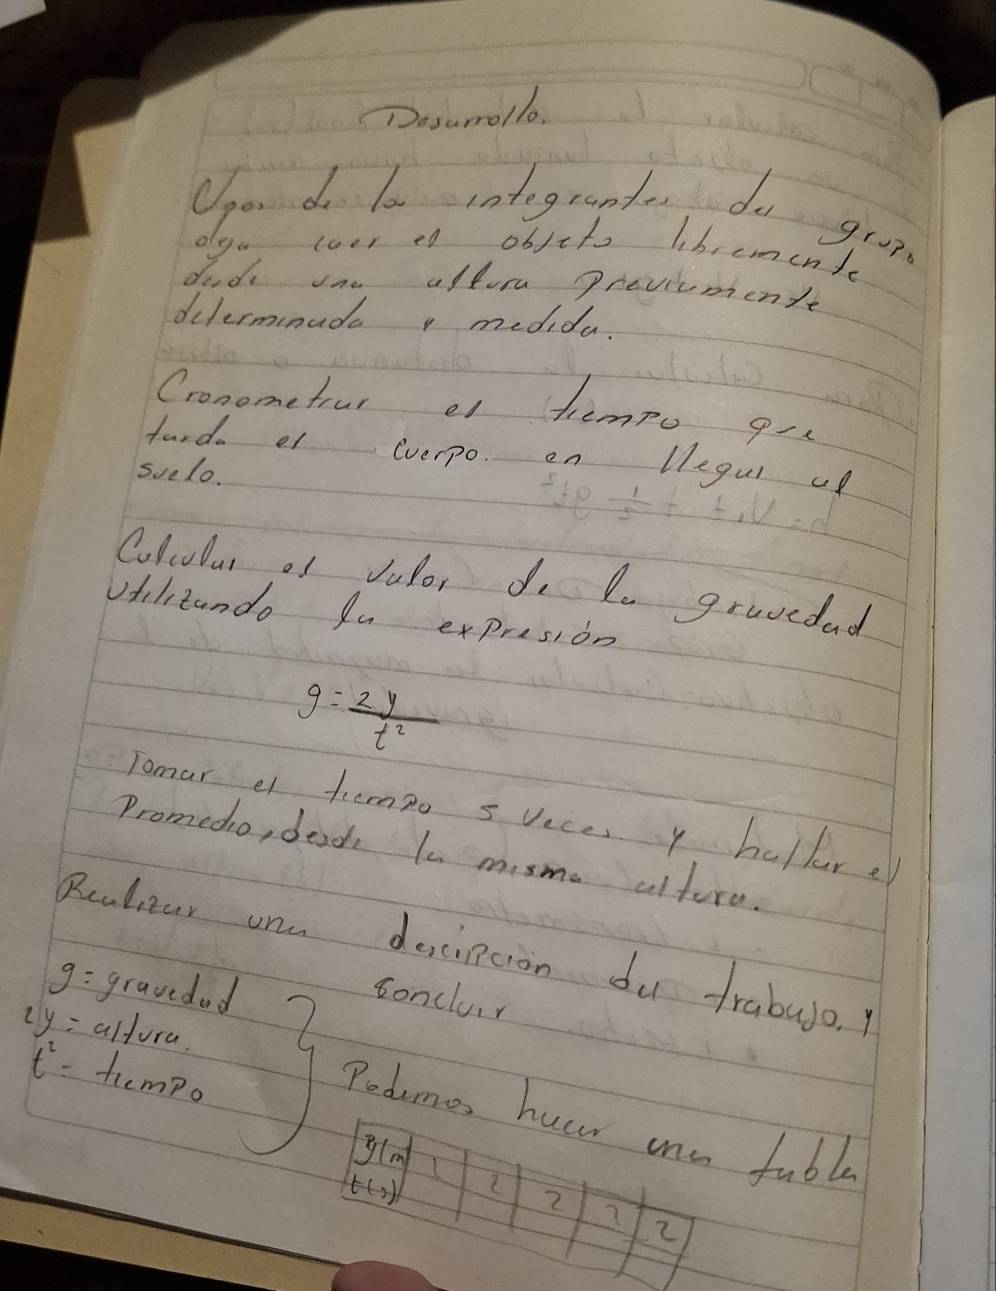 Desarrollo.
Uno de los integrantes del grupo
deja caer el objeto libremente
desde una altura previamente
determinada y medida.
Cronometrar el tiempo que
tarda el cuerpo en llegar al
suelo.
Calcular el valor de la gravedad
utilizando la expresión
g = 2y / t²
Tomar el tiempo 5 veces y hallar el
Promedio, desde la misma altura.
Realizar una descipción del trabajo. y
concluir
g = gravedad
2y = altura.
t² = tiempo
Podemos hacer una tabla
y(m) 2 2 2 2 2
t(s)